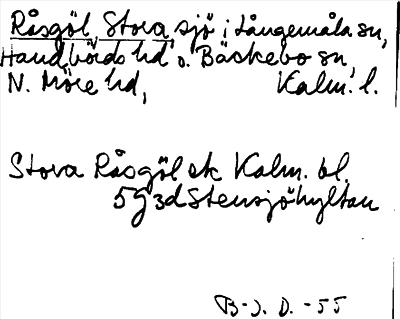 Råsgöl, Stora sjö i Långemåla sn,
Handbörds hd o. Bäckebo sn,
N. Möre hd, Kalm. l.
Stora Råsgöl ek Kalm. bl.
5g3d Stensjöhyltan
B-J. D. -55